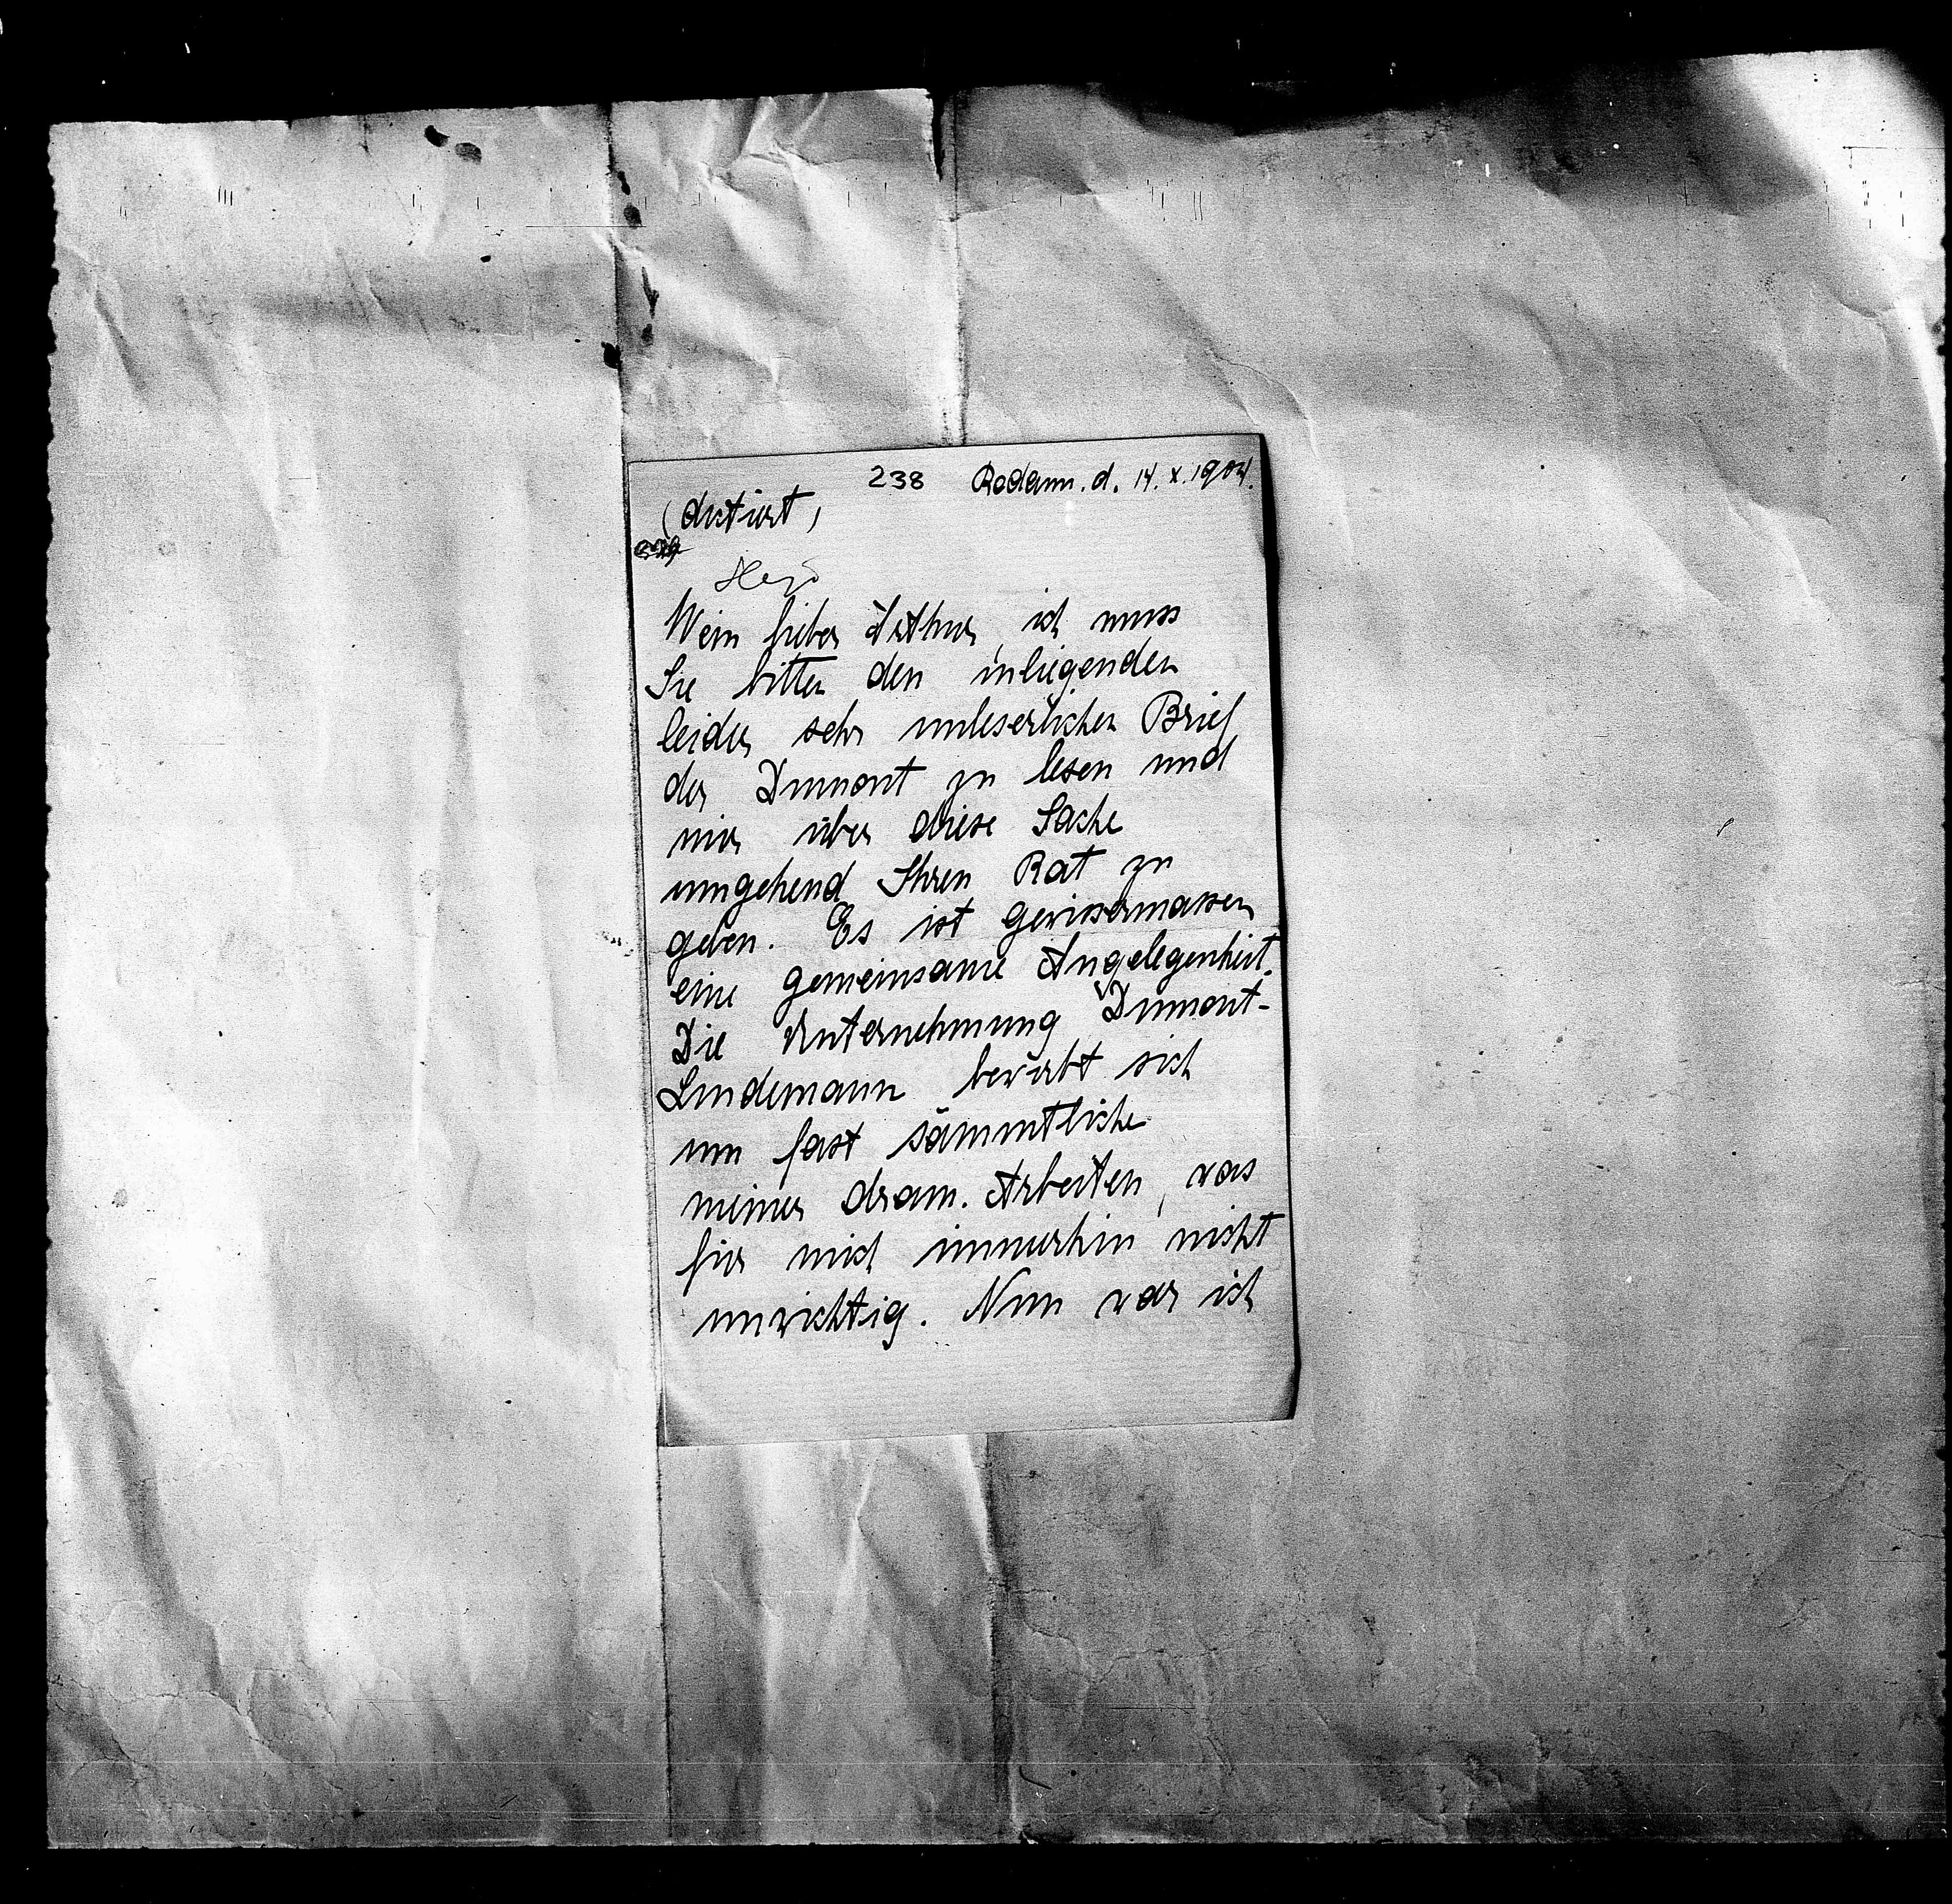 238 Rodaun. d. 14. X. 1904.
(dictiert)
Mein lieber Arthur, ich muss
Sie bitten den inliegenden
leider sehr unleserlichen Brief
der Dumont zu lesen und
mir über diese Sache
umgehend Ihren Rat zu
geben. Es ist gewissermassen
eine gemeinsame Angelegenheit.
Die Unternehmung Dumont-
Lindemann bewirbt sich
um fast sämmtliche
meiner dram. Arbeiten, was
für mich immerhin nicht
unwichtig. Nun war ich